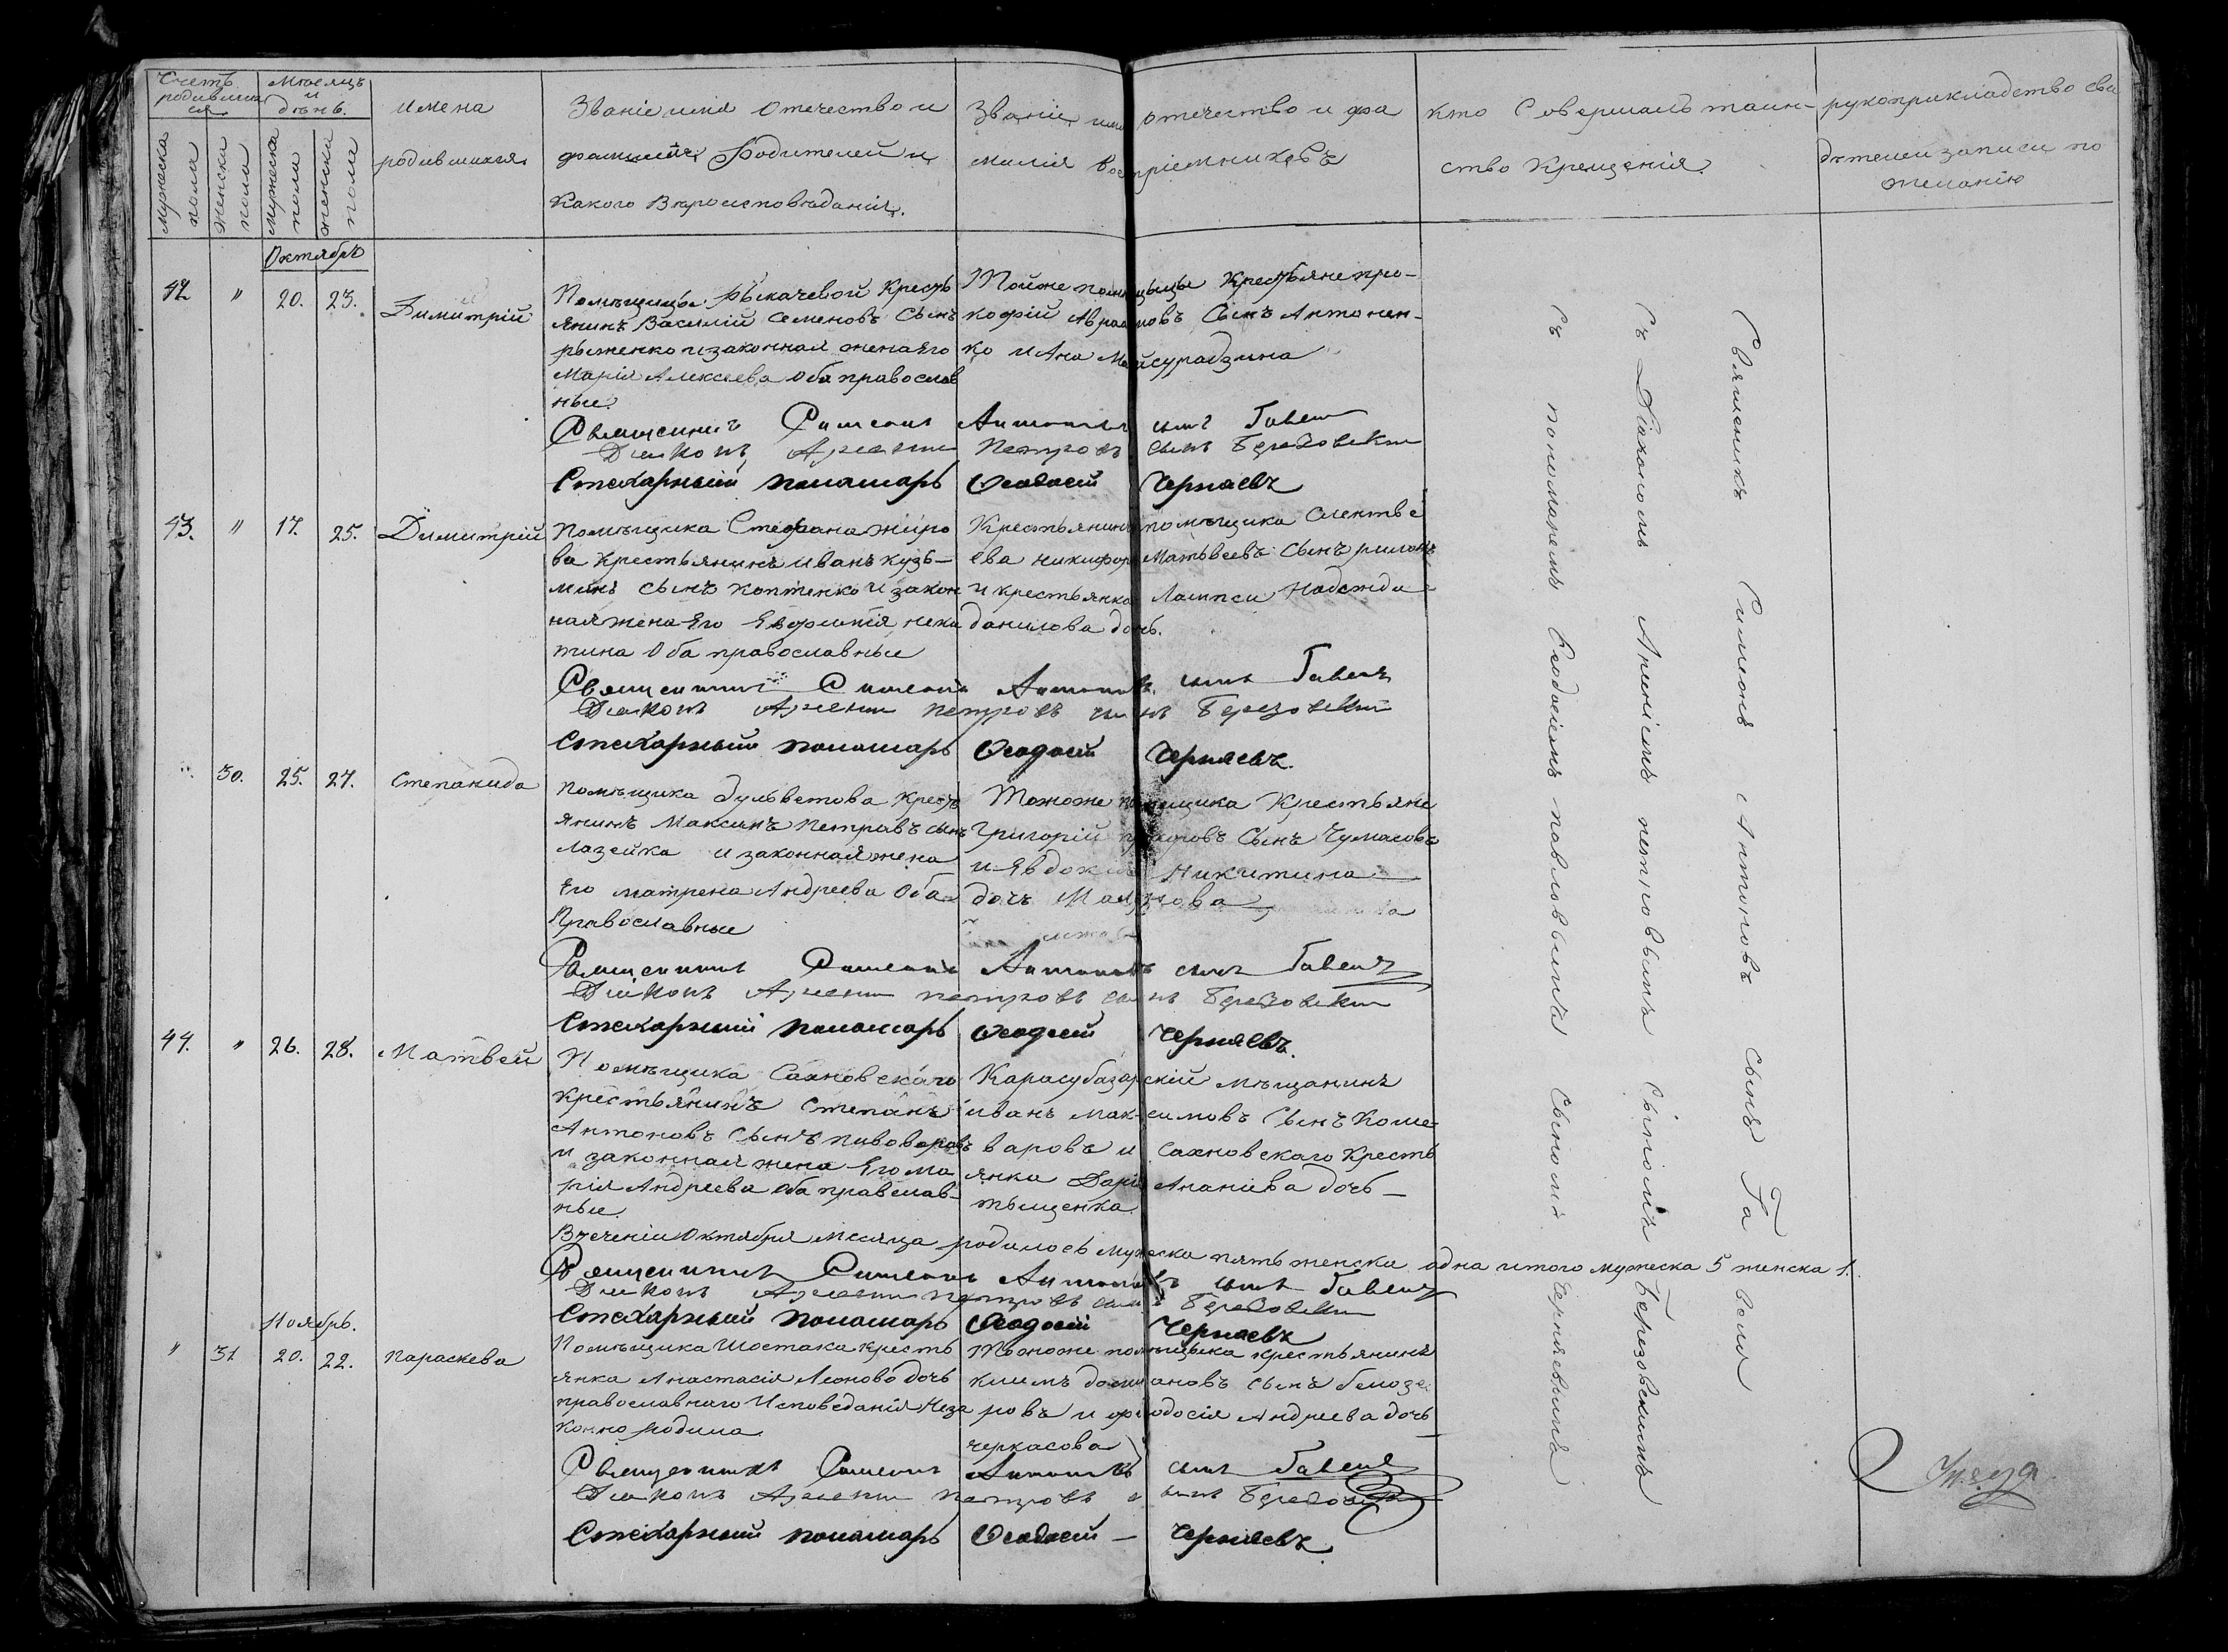 Счетъ
родивших
ся
Мѣсяцъ
и
день.
Мужеска
пола
Женска
пола
Мужеска
пола
женска
пола
имена
родившихся.
Званіе имя Отечество и
фамилія Родителей и
Какого Вѣроисповѣданія.
Званіе имя отечество и фа
милія воспріемниковъ
кто Совершалъ таин-
ство Крещенія.
рукоприкладство сви
дѣтелей записи по
желанію
Октябрь
42. " 20. 23. Димитрій
Помѣщицы Рыкачевой Кресть
янинъ Василій Семеновъ Сынъ
рыженко и законная жена Его
Марія Алексеева Оба православ
ные.
Тойже помещицы Крестьяне про-
кофій Аврамовъ Сынъ Антонен-
ко и Ана Майсурадзина
Священникъ Симеонъ Антоновъ сынъ Гавель
Діаконъ Арсеній Петровъ сынъ Березовскій
Стихарный пономарь Ѳеодосій Черняевъ
43. " 17. 25. Димитрій
Помѣщика Стефана жиро
ва Крестьянинъ Иванъ Кузь-
минъ сынъ коптенко и закон
ная жена Его Евфимія ники
тина Оба православные
Крестьянинъ помѣщика
ева никифоръ Матвеевъ Сынъ
и крестьянка Лампси Надежда
данилова дочь.
Священникъ Симеонъ Антоновъ сынъ Гавель
Діаконъ Арсеній петровъ сынъ Березовскій
Стихарный пономарь Ѳеодосій Черняевъ.
" 30. 25. 27. Степанида
помѣщика Кресть
янинъ Максимъ Петровъ сынъ
Лазейка и законная жена
Его матрена Андреева Оба
Православные
Тогоже помещика Крестьяне
Григорій Сынъ Чумаковъ
и Явдокия Никитина
дочь
Священникъ Симеонъ Антоновъ сынъ Гавель
Діаконъ Арсеній петровъ сынъ Березовскій
Стихарный пономарь Ѳеодосій Черняевъ.
44. " 26. 28. Матвей
Помѣщика Сахновскаго
Крестьянинъ Степанъ
Антоновъ Сынъ пивоваровъ
и законная жена Его ма
рія Андреева Оба православ-
ные.
Карасубазарскій мѣщанинъ
иванъ Максимовъ Сынъ Коше-
варовъ и Сахновскаго Кресть
янка Дарія Ананіева дочь -
тыщенка.
Втеченіи Октября Месяца родилось мужеска пять женска одна итого мужеска 5 женска 1.
Священникъ Симеонъ Антоновъ сынъ Гавель
Діаконъ Арсеній петровъ сынъ Березовскій
Стихарный пономарь Ѳеодосій Черняевъ
Ноябрь.
" 31 20. 22. параскева
Помѣщика Шостака кресть
янка Анастасія Леонова дочь
православнаго Исповеданія неза
конно родила.
тогоже помѣщика крестьянинъ
климъ сынъ белозе
ровъ и феодосія Андреева дочь
черкасова
Священникъ Симеонъ Антоновъ сынъ Гавель
Діаконъ Арсеній петровъ сынъ Березовскій
Стихарный пономарь Ѳеодосій - Черняевъ.
Священникъ Симеонъ Антоновъ Сынъ Гавель
Съ Діакономъ Арсеніемъ петровымъ Сыномъ Березовскимъ
Съ пономаремъ Ѳеодосіемъ павловымъ Сыномъ Черняевымъ